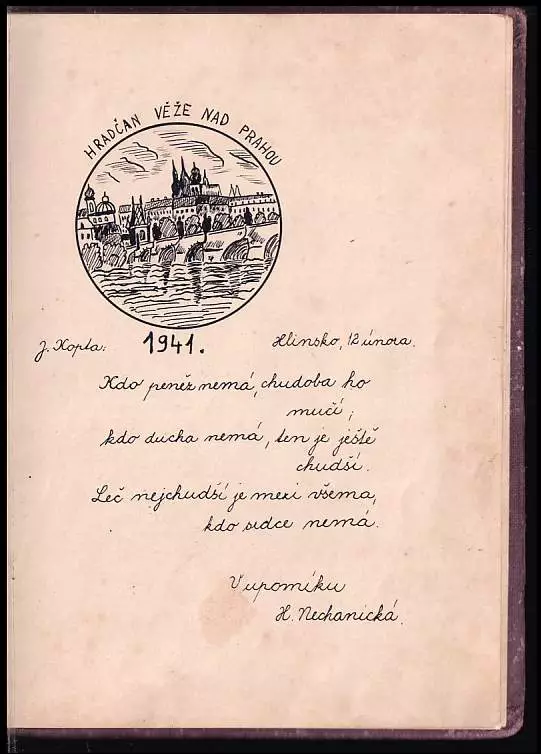 HRADČAN VĚŽE NAD PRAHOU
J. Kopta: 1941. Hlinsko, 12 února.
Kdo peněz nemá, chudoba ho
mučí;
kdo ducha nemá, ten je ještě
chudší.
Leč nejchudší je mezi všema,
kdo srdce nemá.
V upomíku
H. Nechanická.